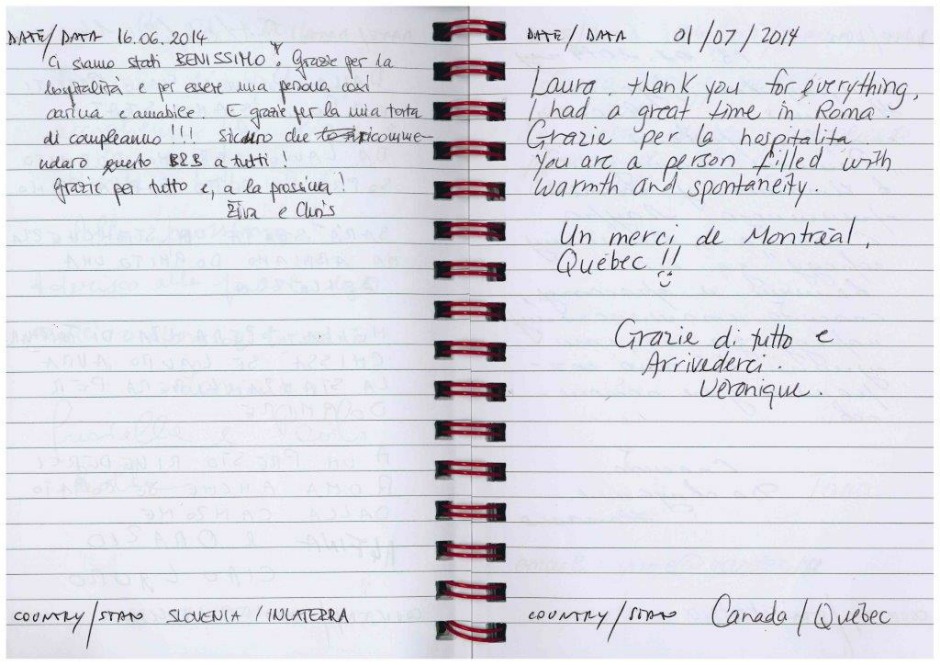 DATE/DATA 16.06.2014
Ci siamo stati BENISSIMO! Grazie per la
hospitalità e per essere una persona così
carina e amabile. E grazie per la mia torta
di compleanno !!! Sicuro che ricomme-
ndaro questo B&B a tutti!
Grazie per tutto e, a la prossima!
Živa e Chris
COUNTRY/STATO SLOVENIA / INLATERRA
DATE/DATA 01/07/2014
Laura, thank you for everything,
I had a great time in Roma.
Grazie per la hospitalita
You are a person filled with
warmth and spontaneity.
Un merci de Montréal,
Québec !!
Grazie di tutto e
Arrivederci.
Veronique.
COUNTRY/STATO Canada/Québec